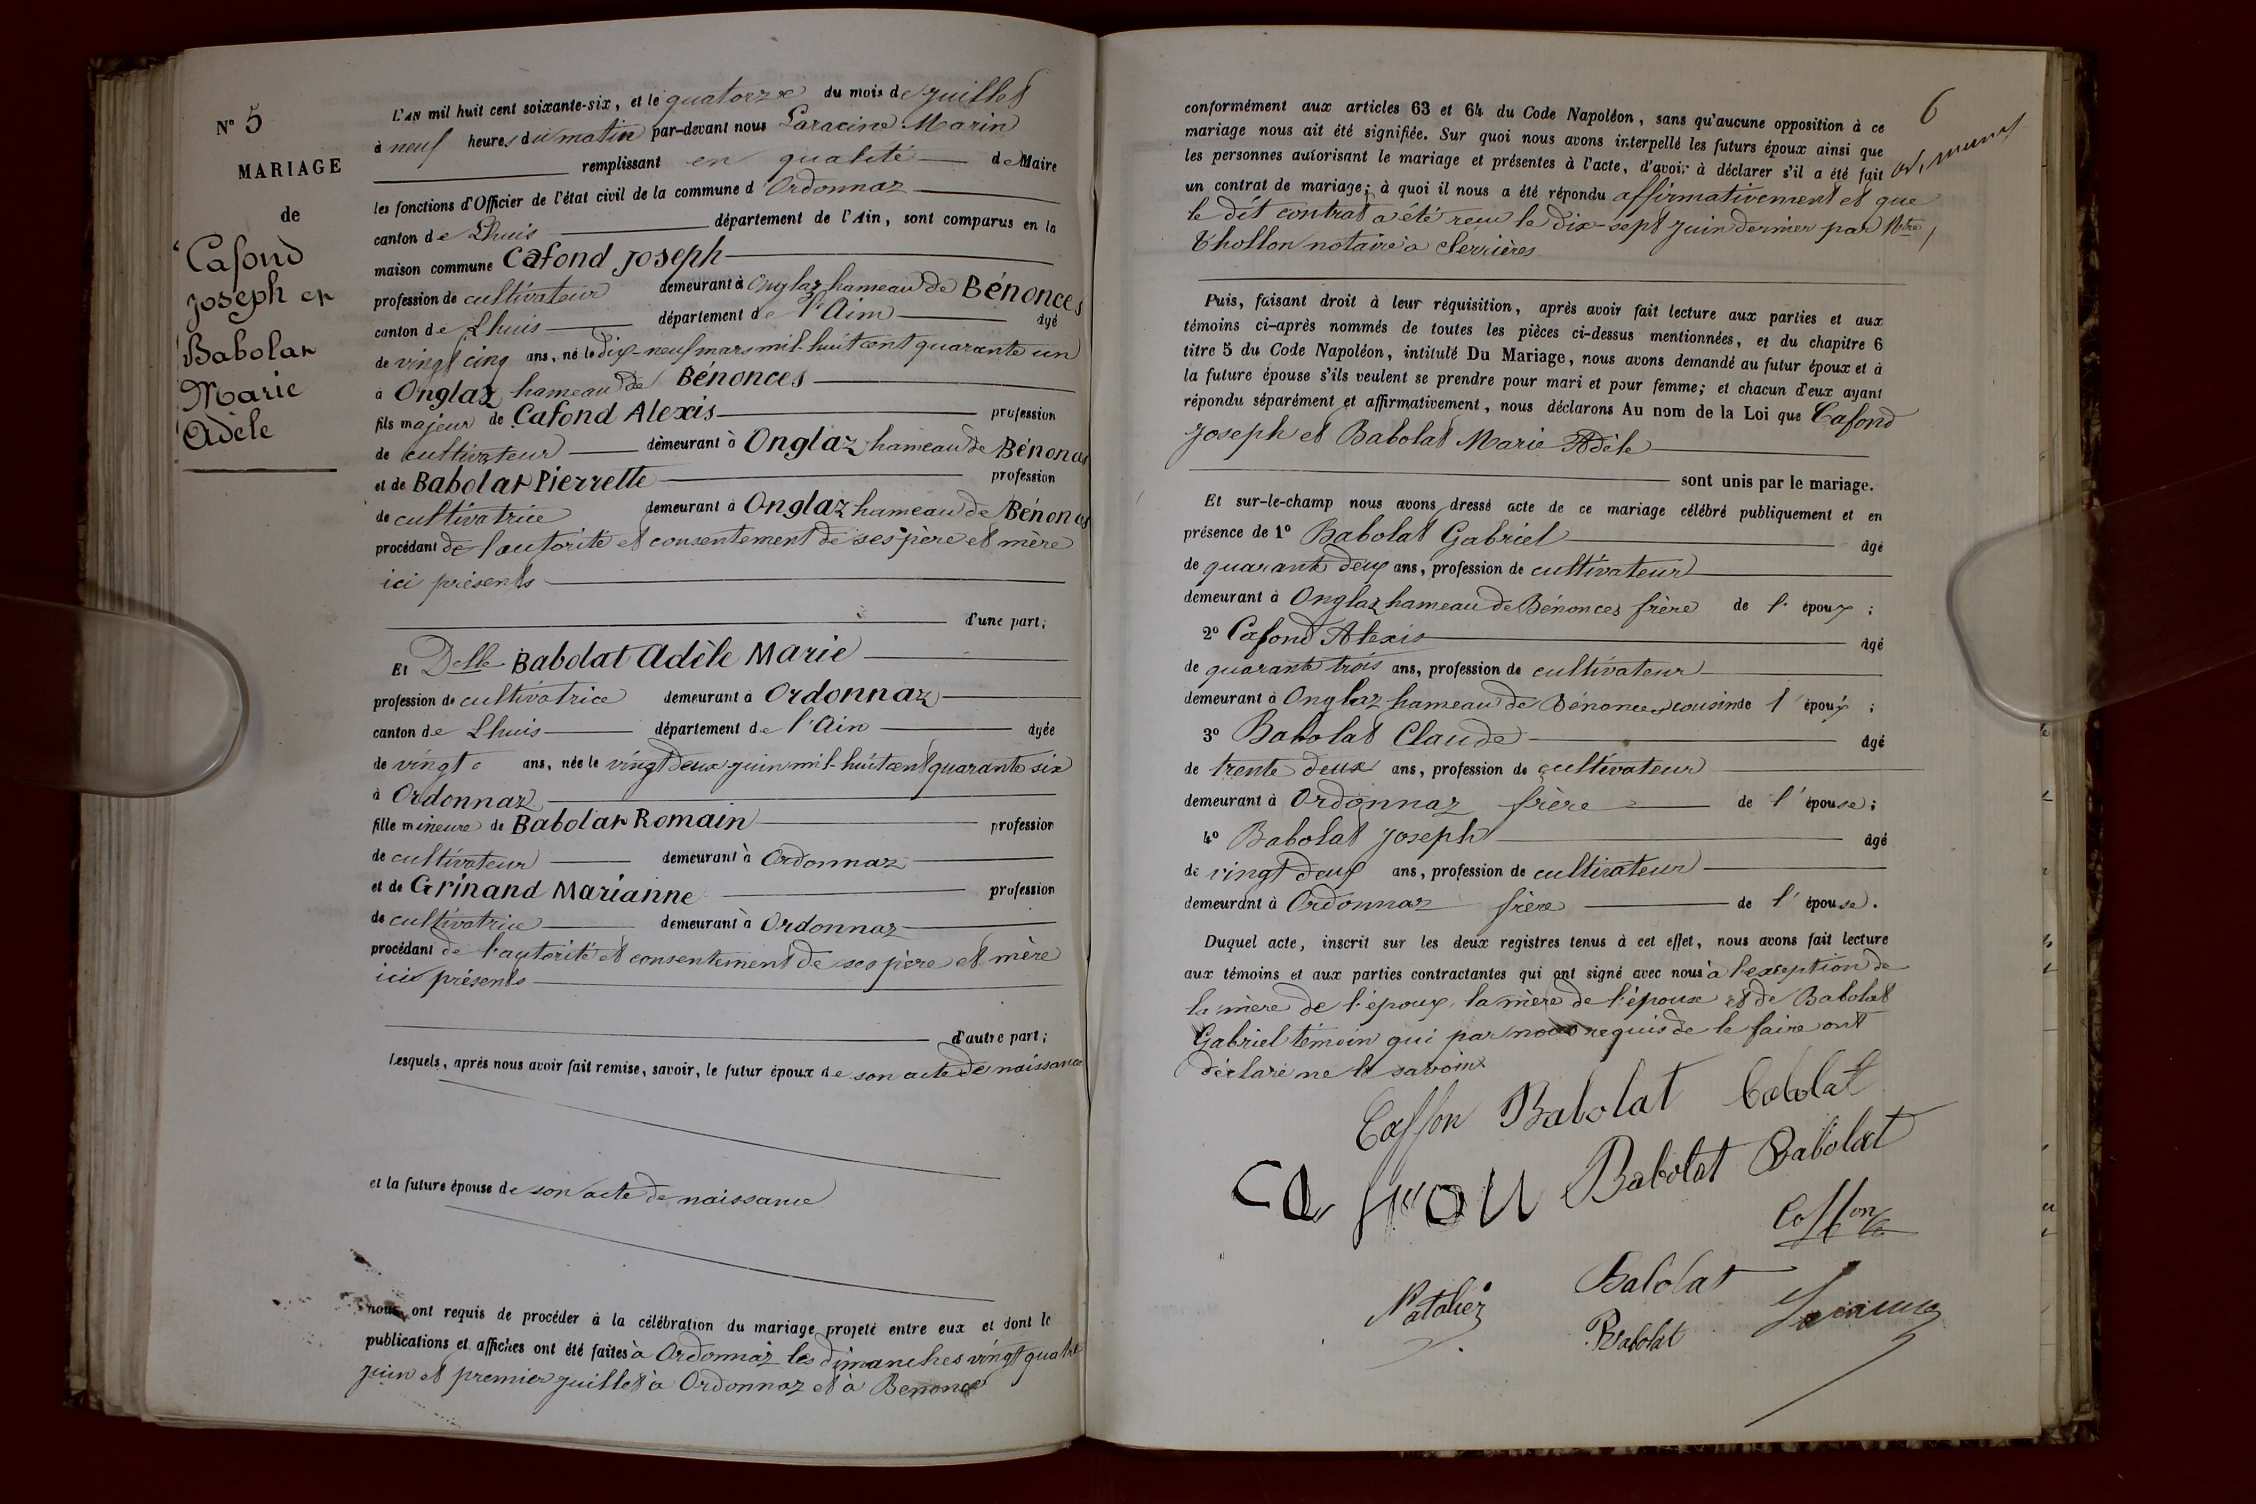 N° 5
MARIAGE
de
Cafond
Joseph et
Babolat
Marie
Adèle
L'AN mil huit cent soixante-six, et le quatorze du mois de juillet
à neuf heures du matin par-devant nous Laracine Marin
remplissant en qualité de Maire
les fonctions d'Officier de l'état civil de la commune d'Ordonnaz
canton de Lhuis département de l'Ain, sont comparus en la
maison commune Cafond Joseph
profession de cultivateur demeurant à Onglaz hameau de Bénonces
canton de Lhuis département de l'Ain âgé
de vingt cinq ans, né le dix-neuf mars mil-huit cent quarante un
à Onglaz hameau de Bénonces
fils majeur de Cafond Alexis profession
de cultivateur demeurant à Onglaz hameau de Bénonces
et de Babolat Pierrette profession
de cultivatrice demeurant à Onglaz hameau de Bénonces
procédant de l'autorité et consentement de ses père et mère
ici présents
d'une part;
Et Delle Babolat Adèle Marie
profession de cultivatrice demeurant à Ordonnaz
canton de Lhuis département de l'Ain âgée
de vingt ans, née le vingt deux juin mil-huit cent quarante six
à Ordonnaz
fille mineure de Babolat Romain profession
de cultivateur demeurant à Ordonnaz
et de Grinand Marianne profession
de cultivatrice demeurant à Ordonnaz
procédant de l'autorité et consentement de ses père et mère
ici présents
d'autre part;
Lesquels, après nous avoir fait remise, savoir, le futur époux de son acte de naissance
et la future épouse de son acte de naissance
nous ont requis de procéder à la célébration du mariage projeté entre eux et dont le
publications et affiches ont été faites à Ordonnaz les dimanches vingt quatre
juin et premier juillet à Ordonnaz et à Benonces
6
conformément aux articles 63 et 64 du Code Napoléon, sans qu'aucune opposition à ce
mariage nous ait été signifiée. Sur quoi nous avons interpellé les futurs époux ainsi que
les personnes autorisant le mariage et présentes à l'acte, d'avoir à déclarer s'il a été fait
un contrat de mariage; à quoi il nous a été répondu affirmativement et que
le dit contrat a été reçu le dix-sept juin dernier par Mtre
Thollon notaire à Serrières
Puis, faisant droit à leur réquisition, après avoir fait lecture aux parties et aux
témoins ci-après nommés de toutes les pièces ci-dessus mentionnées, et du chapitre 6
titre 5 du Code Napoléon, intitulé Du Mariage, nous avons demandé au futur époux et à
la future épouse s'ils veulent se prendre pour mari et pour femme; et chacun d'eux ayant
répondu séparément et affirmativement, nous déclarons Au nom de la Loi que Cafond
Joseph et Babolat Marie Adèle
sont unis par le mariage.
Et sur-le-champ nous avons dressé acte de ce mariage célébré publiquement et en
présence de 1° Babolat Gabriel âgé
de quarante deux ans, profession de cultivateur
demeurant à Onglaz hameau de Bénonces frère de l'époux;
2° Cafond Alexis âgé
de quarante trois ans, profession de cultivateur
demeurant à Onglaz hameau de Bénonces cousin de l'époux;
3° Babolat Claude âgé
de trente deux ans, profession de cultivateur
demeurant à Ordonnaz frère de l'épouse;
4° Babolat Joseph âgé
de vingt deux ans, profession de cultivateur
demeurant à Ordonnaz frère de l'épouse.
Duquel acte, inscrit sur les deux registres tenus à cet effet, nous avons fait lecture
aux témoins et aux parties contractantes qui ont signé avec nous à l'exception de
la mère de l'époux, la mère de l'épouse et de Babolat
Gabriel témoin qui par nous requis de le faire ont
déclaré ne le savoir
Caffon Babolat Babolat
Babolat Babolat
Caffon
Babolat
Babolat